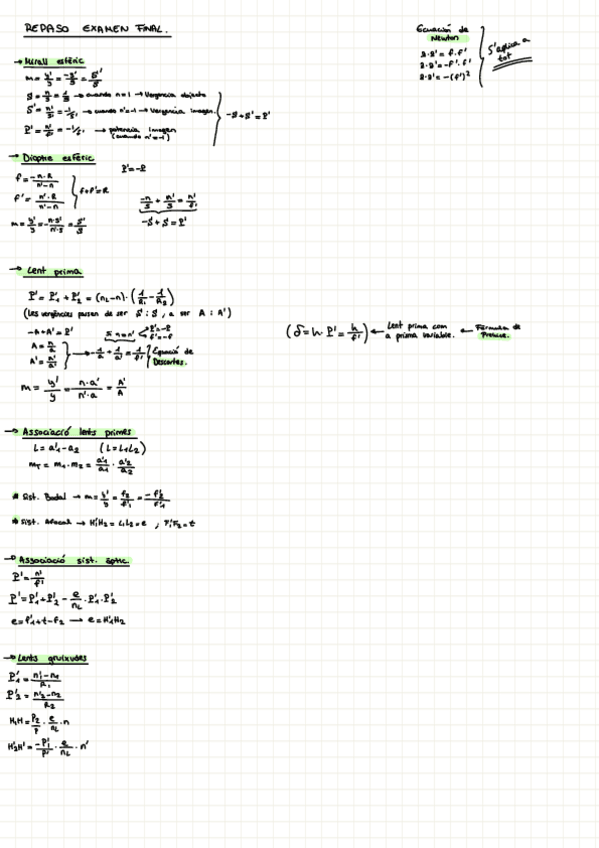 REPASO EXAMEN FINAL.
Ecuación de
Newton
z·z' = f·f'
z·z' = -f'·f'
z·z' = -(f')²
S'aplica a
tot
→ Mirall esfèric
m = y'/y = -s'/s = S/S'
S = n/s = 1/s → cuando n=1 → Vergencia objeto
S' = n'/s' = -1/s' → cuando n'=-1 → Vergencia imagen.
P' = n'/f' = -1/f' → potencia imagen
(cuando n'=-1)
-S+S'=P'
→ Dioptre esfèric
P'=-P
f = -n·R/n'-n
f' = n'·R/n'-n
f+f'=R
-n/s + n'/s' = n'/f'
-S+S'=P'
m = y'/y = n·s'/n'·s = S/S'
→ Lent prima
P' = P'1 + P'2 = (nL-n)·(1/R1 - 1/R2)
(Les vergències passen de ser S i S', a ser A i A')
-A+A'=P'
Si n=n' P'=-P
f'=-f
A = n/a
A' = n'/a'
→ -1/a + 1/a' = 1/f' Equació de
Descartes.
m = y'/y = n·a'/n'·a = A/A'
(δ = h·P' = h/f') ← Lent prima com
a prisma variable. ← Fórmula de
Prentice.
→ Associació lents primes
L = a'1 - a2 (L = L1L2)
mT = m1·m2 = a'1/a1 · a'2/a2
Sist. Badal → m = y'/y = f2/f'1 = -f'2/f'1
Sist. Afocal → H'1H2 = L1L2 = e ; F'1F2 = t
→ Associació sist. òptic.
P' = n'/f'
P' = P'1 + P'2 - e/nL · P'1·P'2
e = f'1 + t - f2 → e = H'1H2
→ Lents gruixudes
P'1 = n'1-n1/R1
P'2 = n'2-n2/R2
H1H = P'2/P' · e/nL · n
H'2H' = -P'1/P' · e/nL · n'